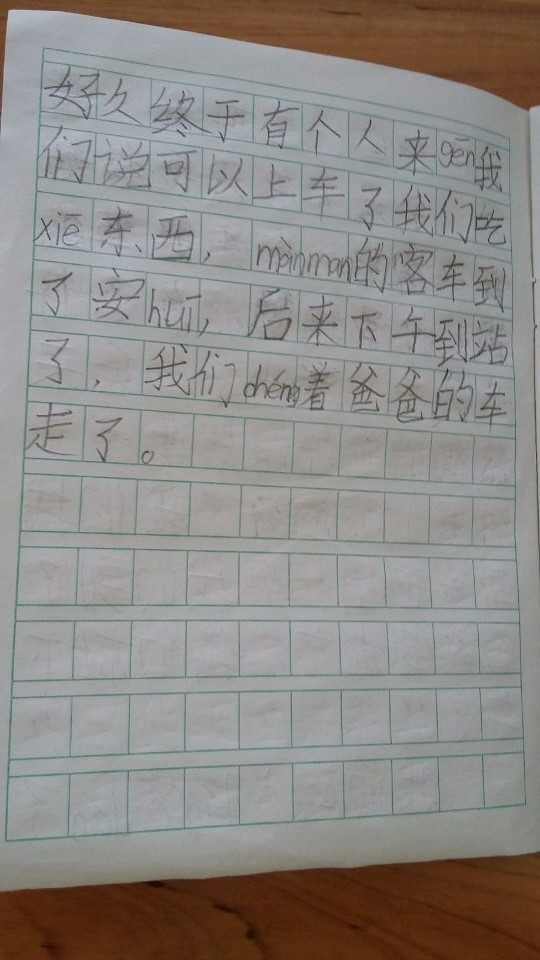 好久终于有个人来gēn我
们说可以上车了我们吃
xiē东西，mànman的客车到
了安huī，后来下午到站
了，我们chéng着爸爸的车
走了。